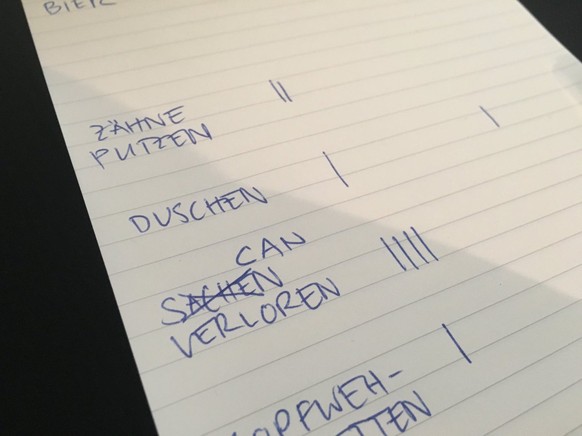 BIER
ZÄHNE ||
PUTZEN |
DUSCHEN |
CAN
SACHEN ||||
VERLOREN
KOPFWEH- |